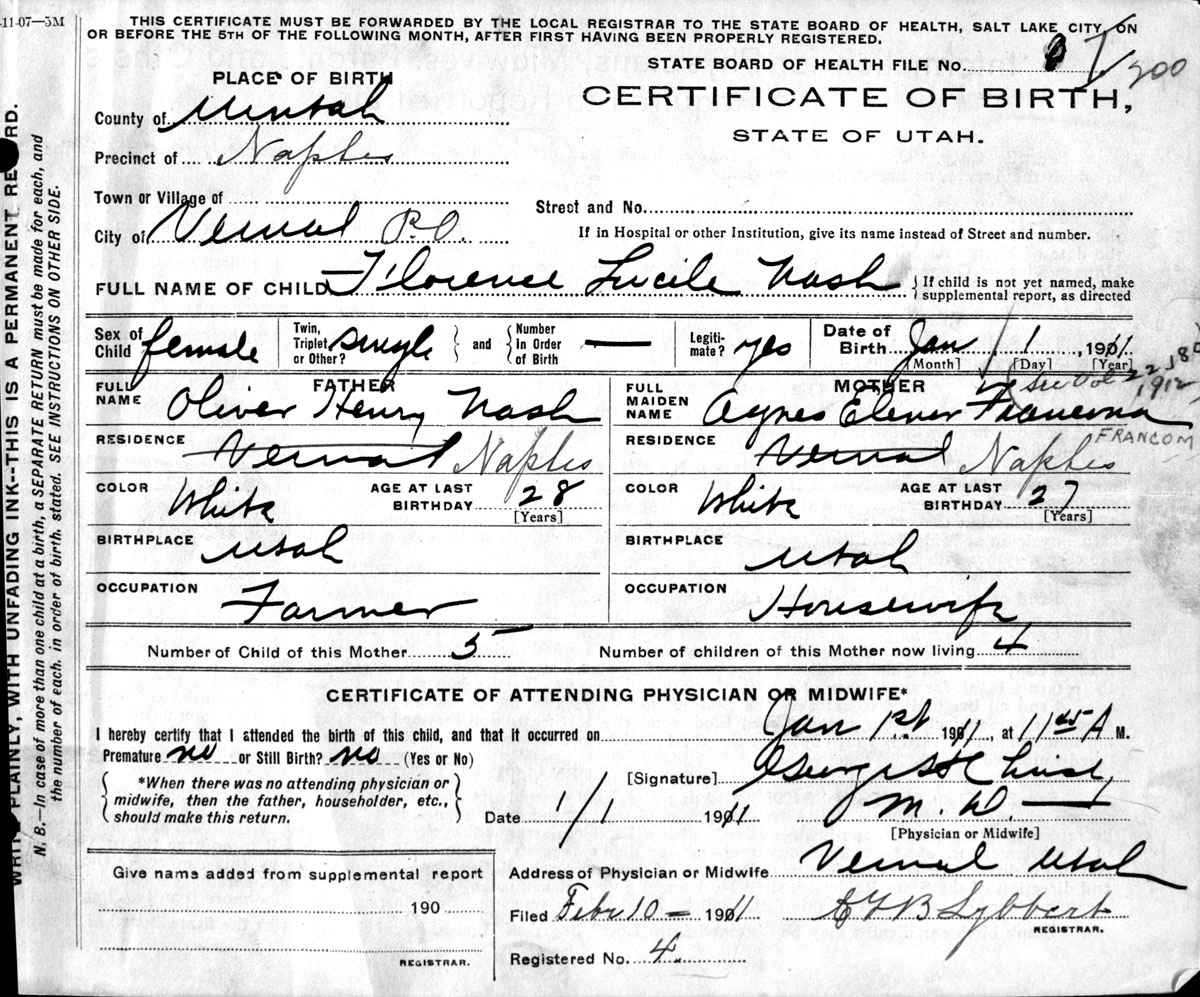 -11-07-5M
THIS CERTIFICATE MUST BE FORWARDED BY THE LOCAL REGISTRAR TO THE STATE BOARD OF HEALTH, SALT LAKE CITY, ON
OR BEFORE THE 5TH OF THE FOLLOWING MONTH, AFTER FIRST HAVING BEEN PROPERLY REGISTERED.
STATE BOARD OF HEALTH FILE No.
CERTIFICATE OF BIRTH,
STATE OF UTAH.
PLACE OF BIRTH
County of Uintah
Precinct of Naples
Town or Village of
City of Vernal P.O.
Street and No.
If in Hospital or other Institution, give its name instead of Street and number.
FULL NAME OF CHILD Florence Lucile Nash
{ If child is not yet named, make
supplemental report, as directed
Sex of Child female
Twin, Triplet, or Other? single } and { Number In Order of Birth —
Legitimate? yes
Date of Birth Jan 1, 1911
[Month] [Day] [Year]
FATHER
FULL NAME Oliver Henry Nash
RESIDENCE Vernal Naples
COLOR White AGE AT LAST BIRTHDAY 28
[Years]
BIRTHPLACE Utah
OCCUPATION Farmer
MOTHER
See Vol 22
1912
FULL MAIDEN NAME Agnes Elener
FRANCOM
RESIDENCE Vernal Naples
COLOR White AGE AT LAST BIRTHDAY 27
[Years]
BIRTHPLACE Utah
OCCUPATION Housewife
Number of Child of this Mother 5 Number of children of this Mother now living 4
CERTIFICATE OF ATTENDING PHYSICIAN OR MIDWIFE*
I hereby certify that I attended the birth of this child, and that it occurred on Jan 1st 1911, at 11 45 A M.
Premature no or Still Birth? no (Yes or No)
{ *When there was no attending physician or
midwife, then the father, householder, etc.,
should make this return. }
[Signature]
M.D.
Date 1/1 1911
[Physician or Midwife]
Address of Physician or Midwife Vernal Utah
Give name added from supplemental report
190
REGISTRAR.
Filed Feby 10 – 1911 Lybbert
REGISTRAR.
Registered No. 4.
WRITE PLAINLY, WITH UNFADING INK--THIS IS A PERMANENT RECORD.
N. B.—In case of more than one child at a birth, a SEPARATE RETURN must be made for each, and
the number of each, in order of birth, stated. SEE INSTRUCTIONS ON OTHER SIDE.